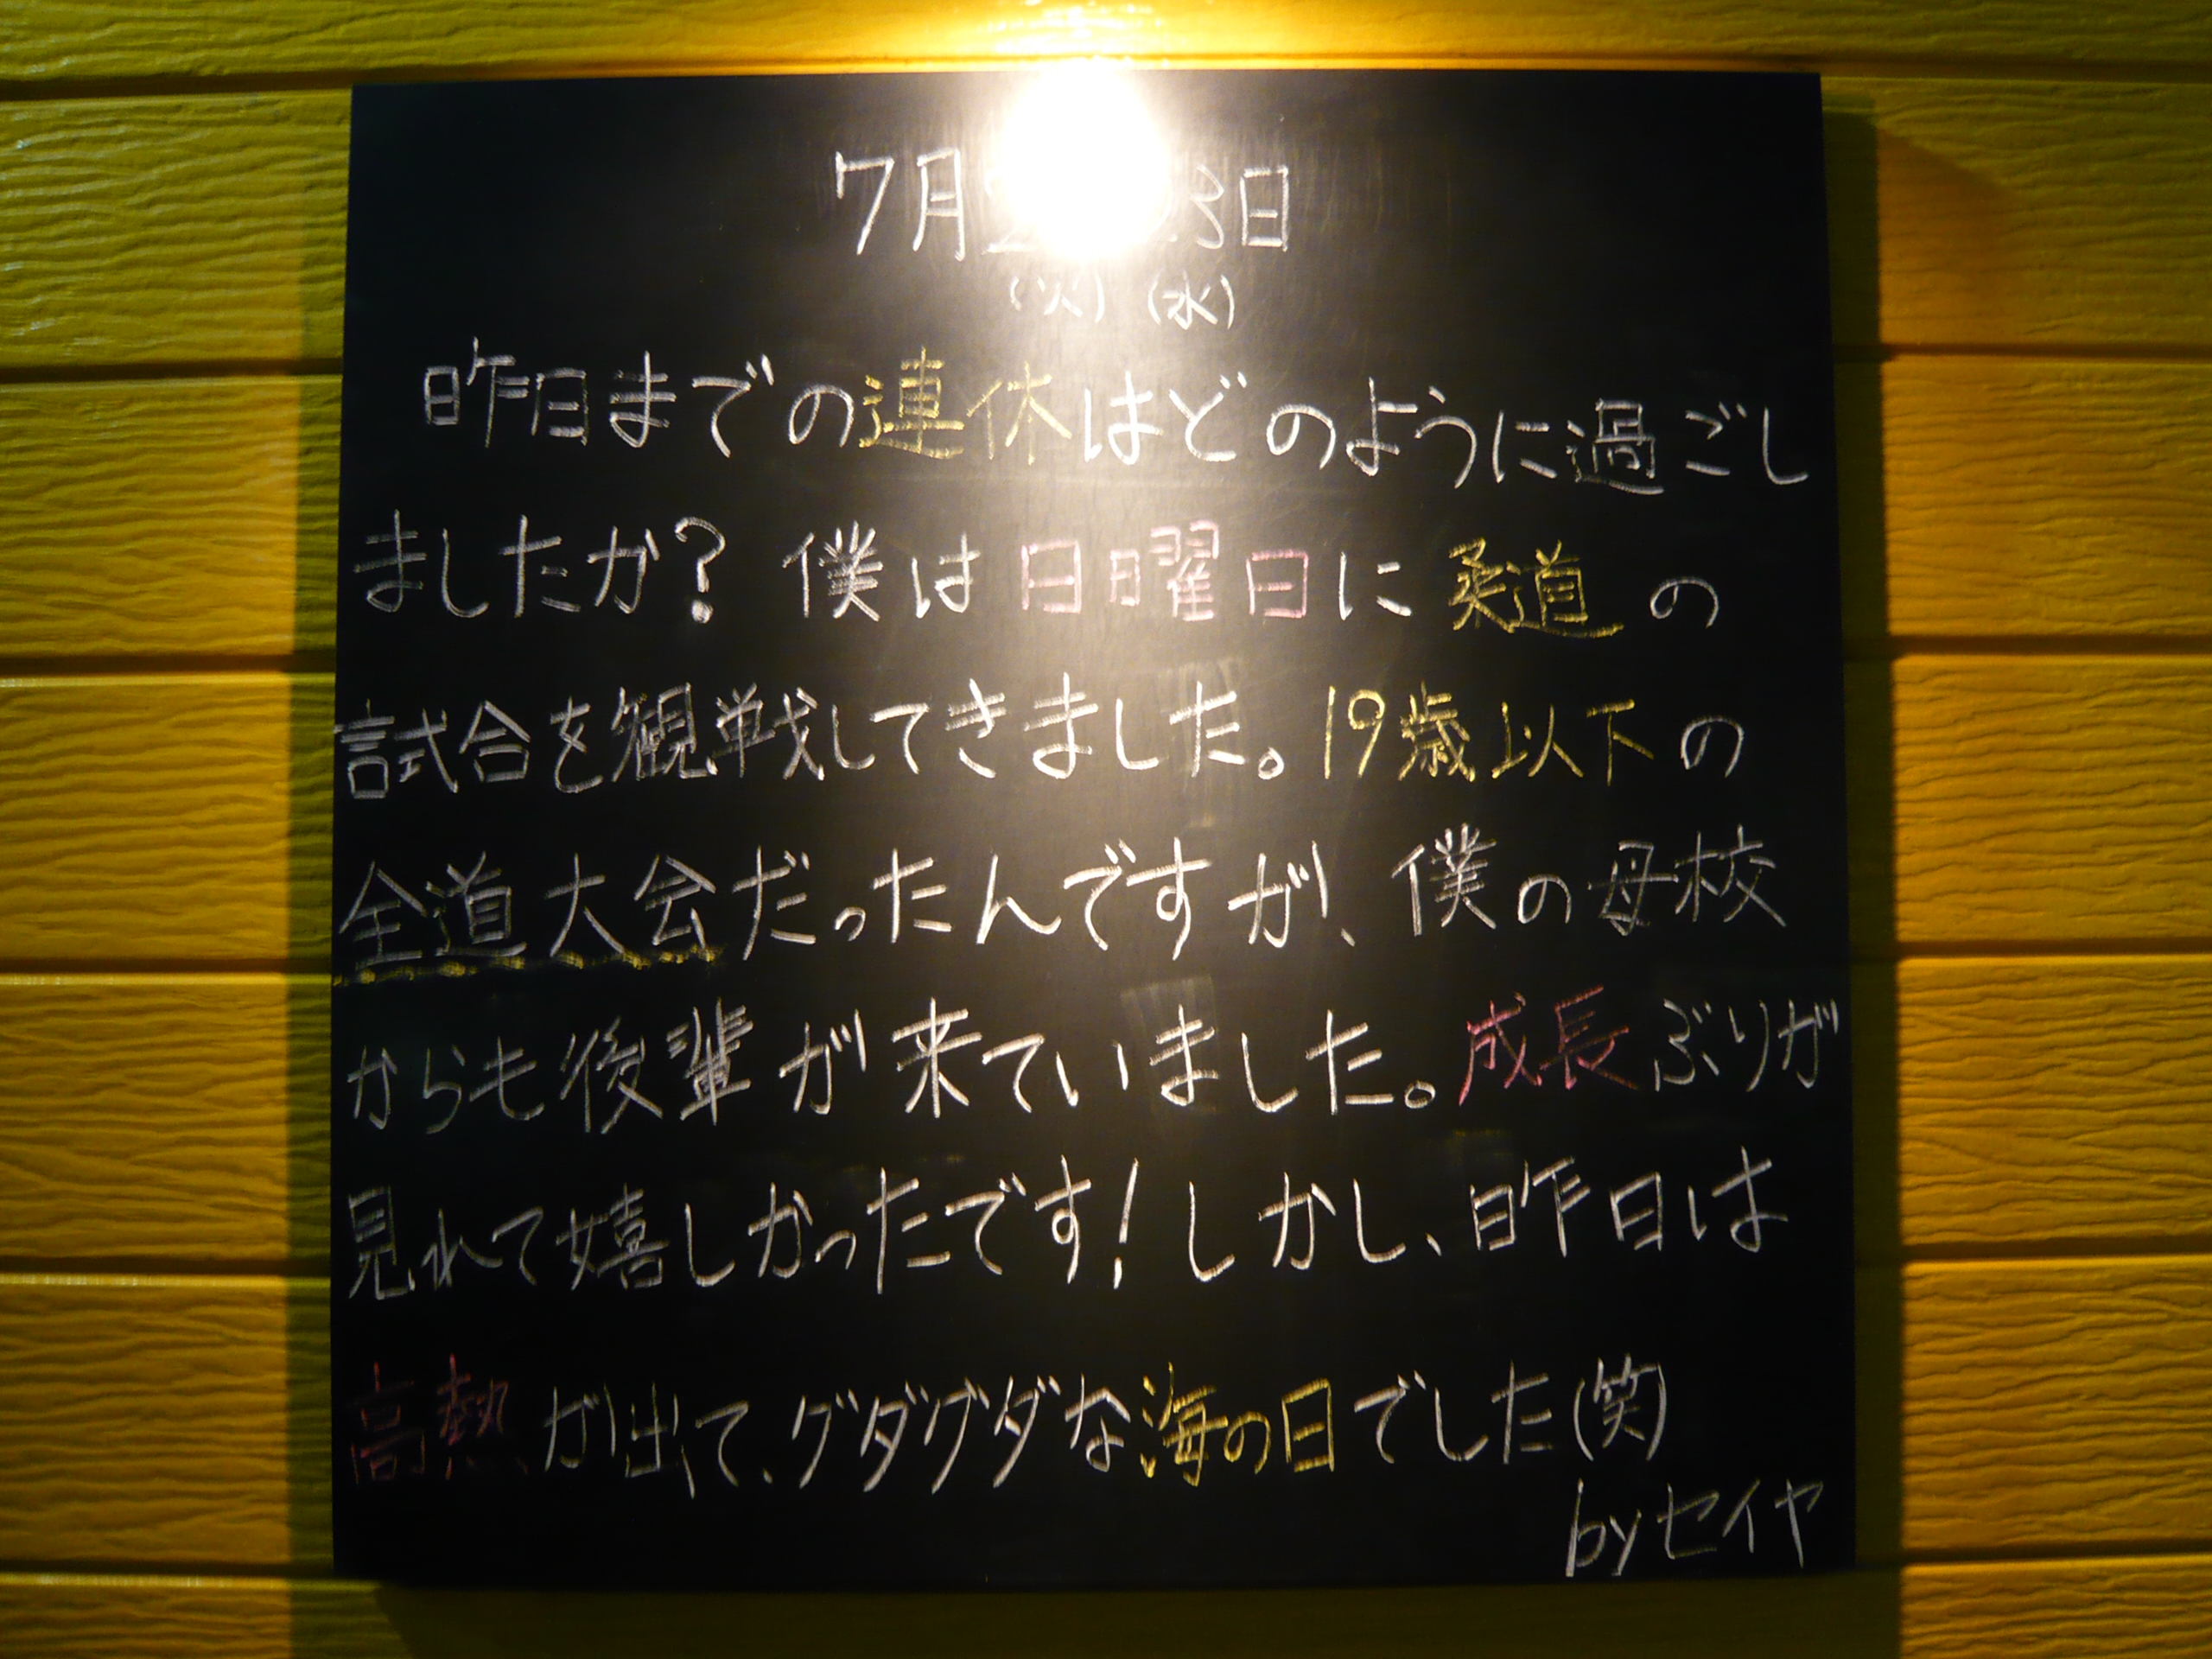 7月 3日
(火) (水)
昨日までの連休はどのように過ごし
ましたか? 僕は日曜日に柔道の
試合を観戦してきました。19歳以下の
全道大会だったんですが、僕の母校
からも後輩が来ていました。成長ぶりが
見れて嬉しかったです!しかし、昨日は
高熱が出て、グダグダな海の日でした(笑)
byセイヤ